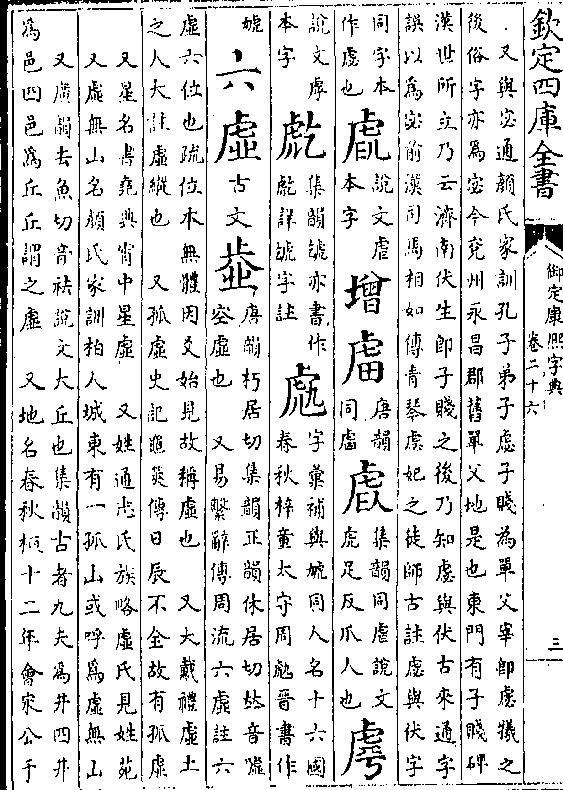 欽定四庫全書
御定康熙字典
卷二十六
三
又與宓通顔氏家訓孔子弟子虙子賤為單父宰卽虙犧之
後俗字亦為宓今兖州永昌郡舊單父地是也東門有子賤碑
漢世所立乃云濟南伏生卽子賤之後乃知虙與伏古來通字
誤以為宓前漢司馬相如傳青琴虙妃之徒師古註虙與伏字
同字本
作虙也 說文虐
本字 增 唐韻
同 集韻同虐說文
虎足反爪人也 虐
說文虖
本字 集韻虓亦書作
詳虓字註 字彙補與虓同人名十六國
春秋梓童太守周虓晉書作
虓 六 虛 古文 唐韻朽居切集韻正韻休居切𠀤音噓
空虛也 又易繫辭傳周流六虛註六
虛六位也疏位本無體因爻始見故稱虛也 又大戴禮虛土
之人大註虛縱也 又孤虛史記龜筴傳日辰不全故有孤虛
又星名書堯典宵中星虛 又姓通志氏族略虛氏見姓苑
又虛無山名顔氏家訓柏人城東有一孤山或呼爲虛無山
又廣韻去魚切音祛說文大丘也集韻古者九夫爲井四井
爲邑四邑爲丘丘謂之虛 又地名春秋桓十二年會宋公于